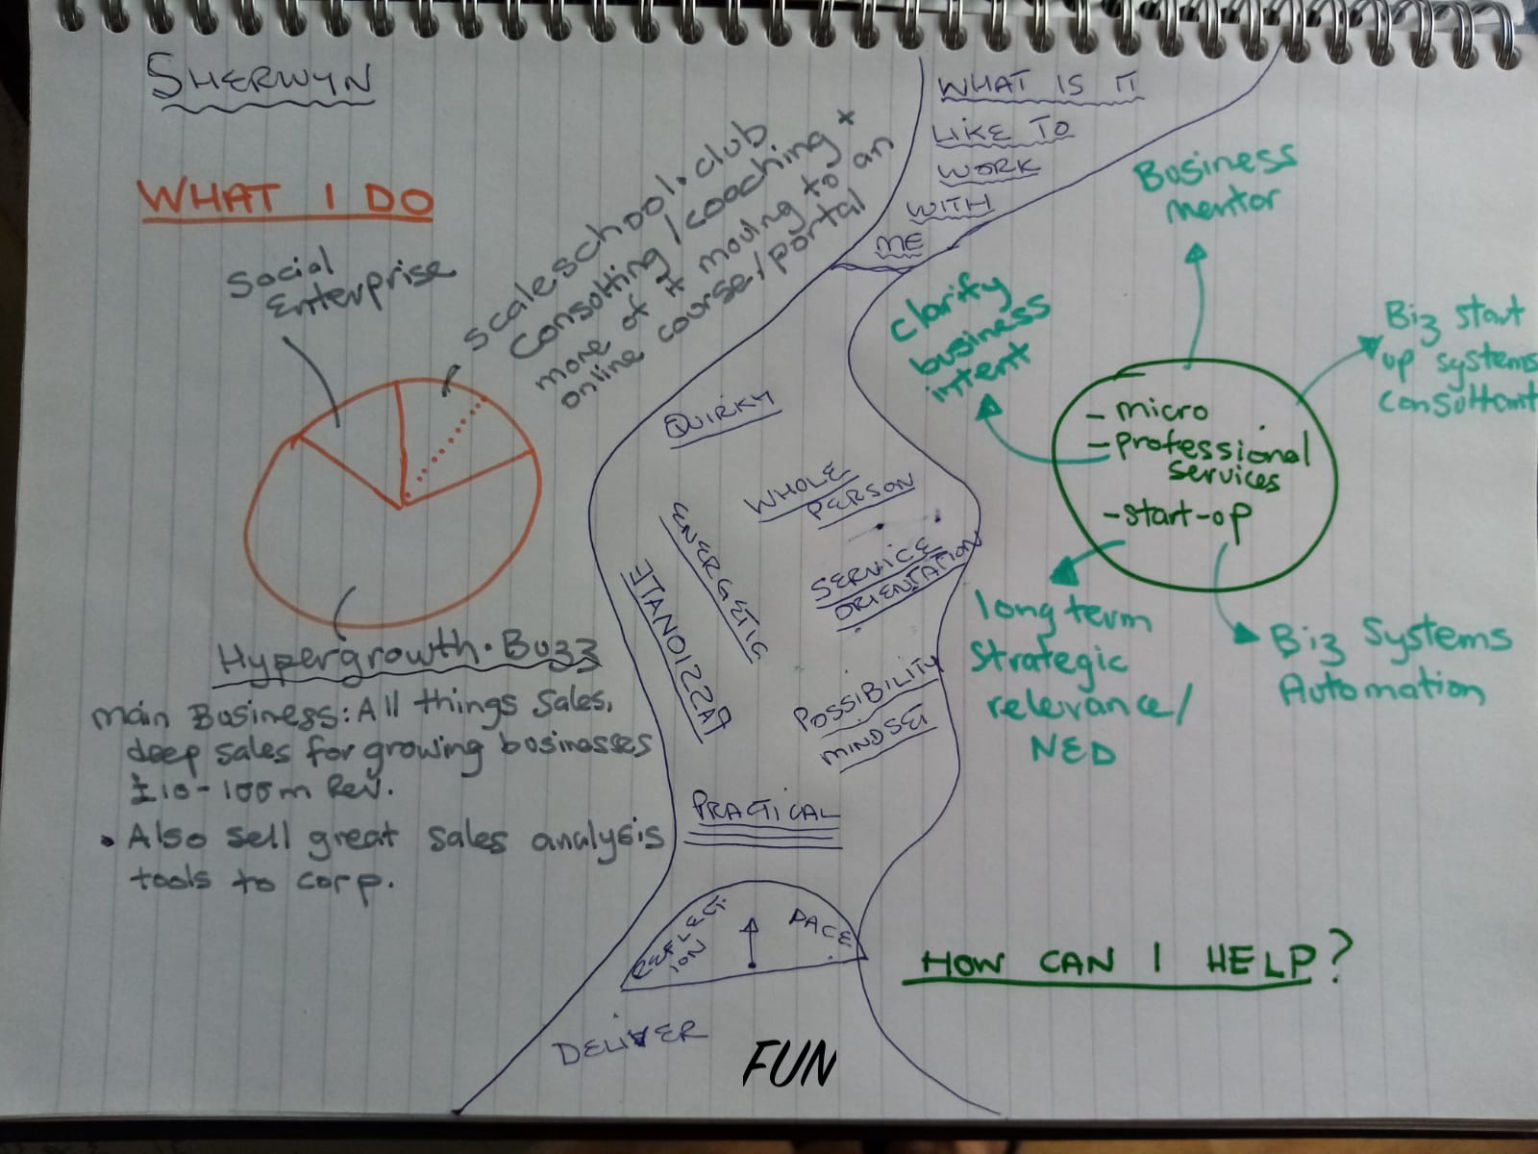 SHERWYN
WHAT I DO
Social
Enterprise
scaleschool.club
Consulting/coaching +
more of it moving to an
online course/portal
Hypergrowth.Buzz
Main Business: All things Sales,
deep sales for growing businesses
£10-100m Rev.
• Also sell great sales analysis
tools to corp.
WHAT IS IT
LIKE TO
WORK
WITH
ME
QUIRKY
WHOLE
PERSON
ENERGETIC
PASSIONATE
SERVICE
ORIENTATION
POSSIBILITY
MINDSET
PRACTICAL
REFLECT-
ION
PACE
DELIVER
FUN
Business
mentor
clarify
business
intent
Biz start
up systems
consultant
- micro
- professional
services
- start-up
long term
Strategic
relevance/
NED
Biz Systems
Automation
HOW CAN I HELP?